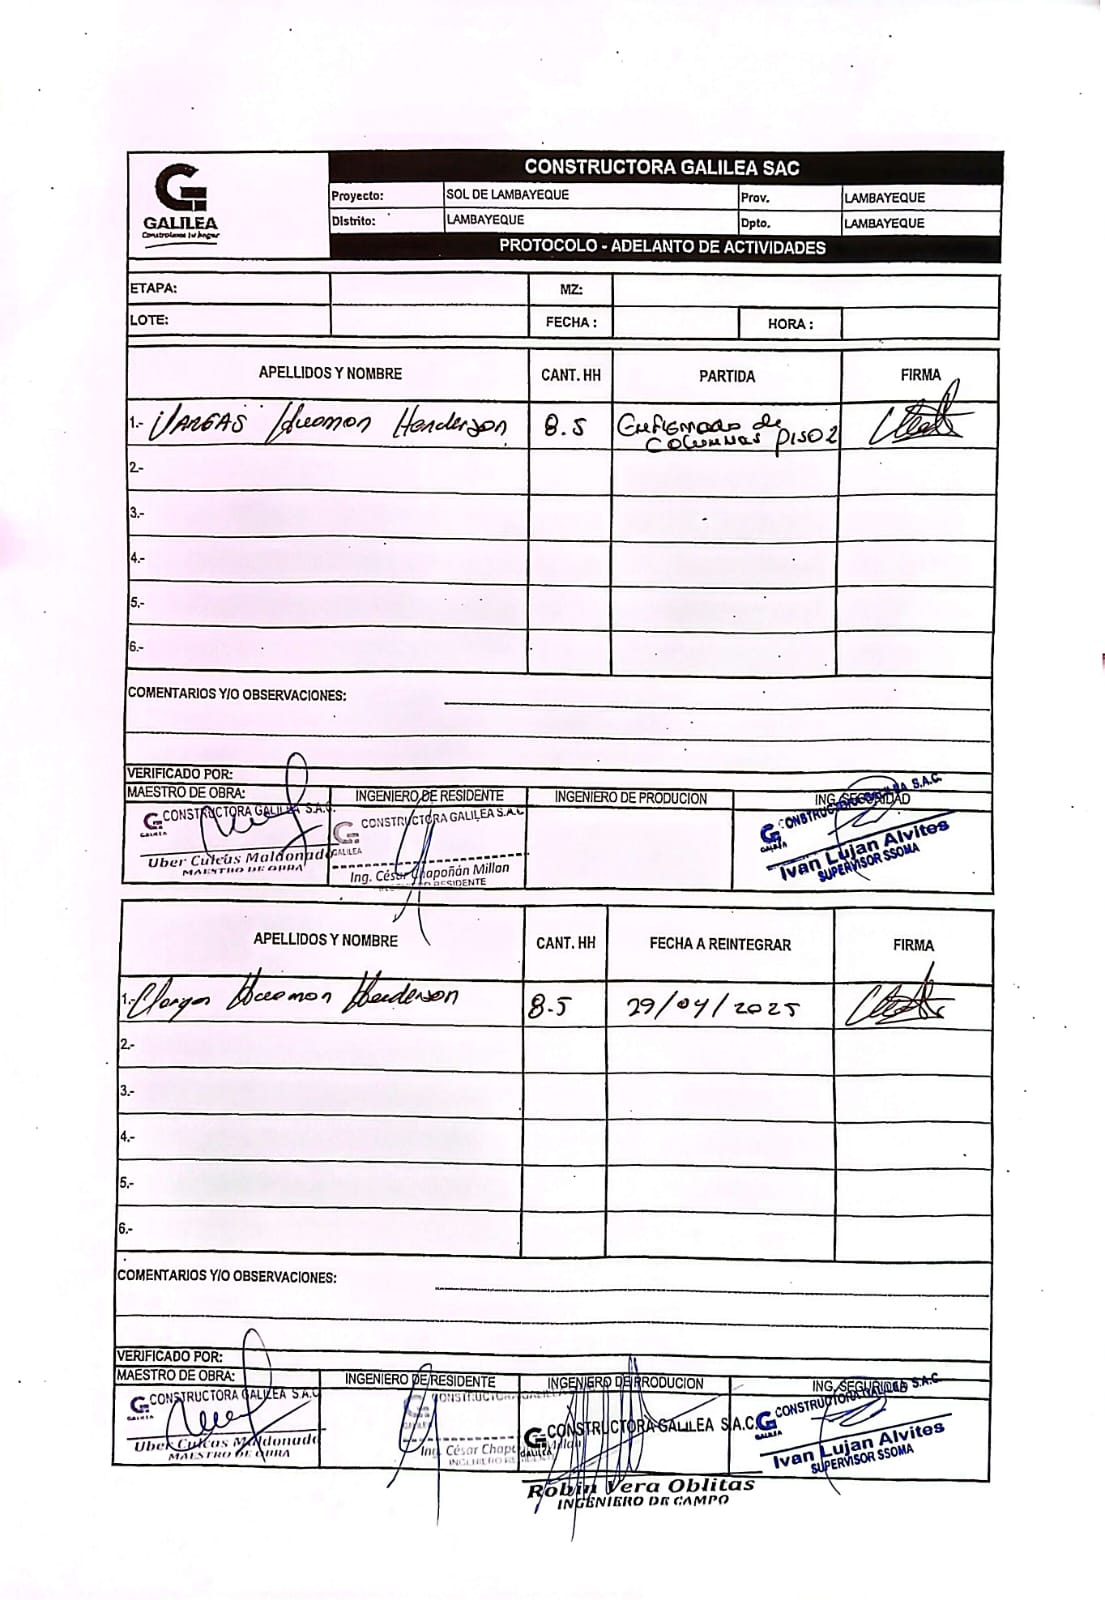 CONSTRUCTORA GALILEA SAC
GALILEA
Construimos tu hogar
Proyecto: SOL DE LAMBAYEQUE Prov. LAMBAYEQUE
Distrito: LAMBAYEQUE Dpto. LAMBAYEQUE
PROTOCOLO - ADELANTO DE ACTIVIDADES
ETAPA: MZ:
LOTE: FECHA : HORA :
APELLIDOS Y NOMBRE CANT. HH PARTIDA FIRMA
1.- VARGAS Huaman Henderson 8.5 Enfierrado de
columnas piso 2
2.-
3.-
4.-
5.-
6.-
COMENTARIOS Y/O OBSERVACIONES:
VERIFICADO POR:
MAESTRO DE OBRA: INGENIERO DE RESIDENTE INGENIERO DE PRODUCION ING. SEGURIDAD
CONSTRUCTORA GALILEA S.A.C. CONSTRUCTORA GALILEA S.A.C CONSTRUCTORA GALILEA S.A.C.
GALILEA GALILEA GALILEA
Uber Culcas Maldonado Ing. César Chapoñán Millan Ivan Lujan Alvites
MAESTRO DE OBRA RESIDENTE SUPERVISOR SSOMA
APELLIDOS Y NOMBRE CANT. HH FECHA A REINTEGRAR FIRMA
1.- Vargas Huaman Henderson 8.5 29/04/2025
2.-
3.-
4.-
5.-
6.-
COMENTARIOS Y/O OBSERVACIONES:
VERIFICADO POR:
MAESTRO DE OBRA: INGENIERO DE RESIDENTE INGENIERO DE PRODUCION ING. SEGURIDAD
CONSTRUCTORA GALILEA S.A.C CONSTRUCTORA GALILEA CONSTRUCTORA GALILEA S.A.C. CONSTRUCTORA GALILEA S.A.C.
GALILEA GALILEA GALILEA GALILEA
Uber Culcas Maldonado Ing. César Chapoñán Millan Ivan Lujan Alvites
MAESTRO DE OBRA INGENIERO RESIDENTE SUPERVISOR SSOMA
Robin Vera Oblitas
INGENIERO DE CAMPO